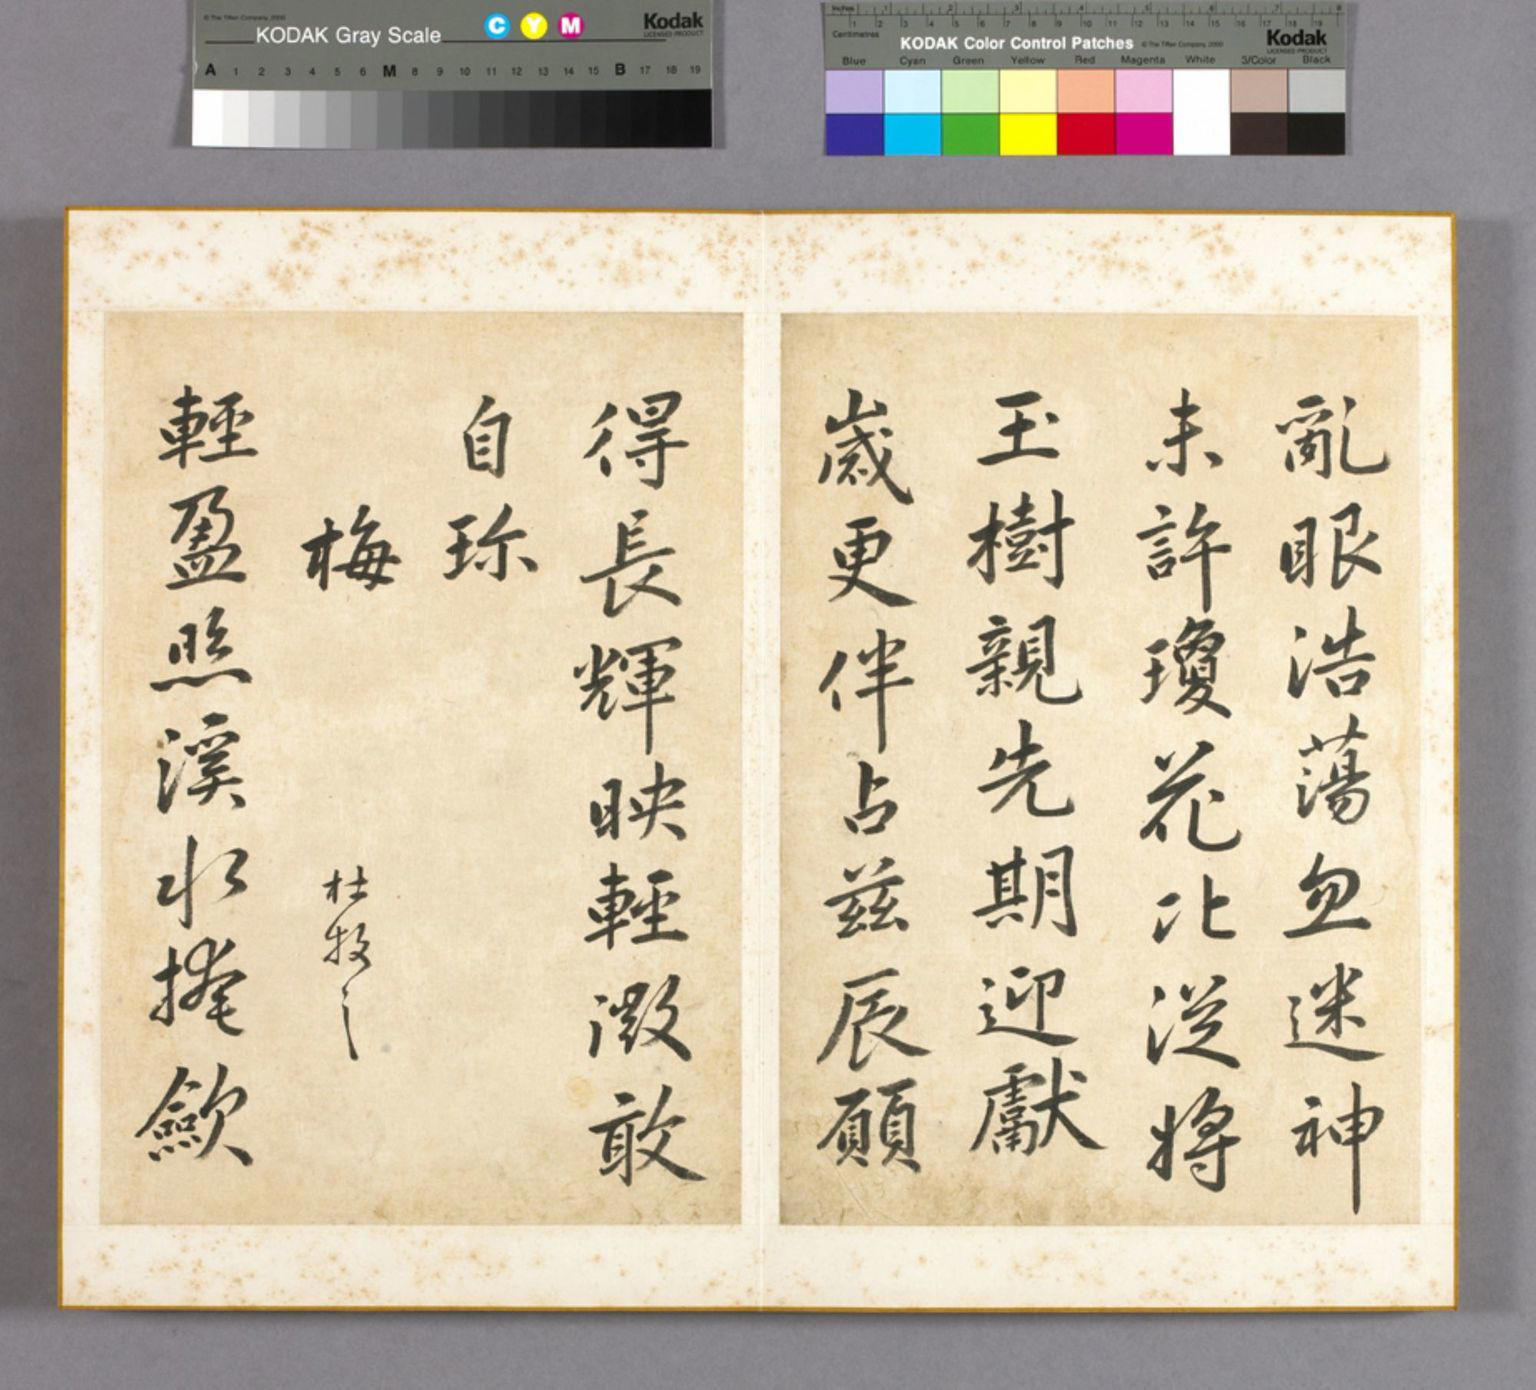 © The Tiffen Company, 2000
KODAK Gray Scale
C Y M
Kodak
LICENSED PRODUCT
A 1 2 3 4 5 6 M 8 9 10 11 12 13 14 15 B 17 18 19
Inches 1 2 3 4 5 6 7 8
Centimetres 1 2 3 4 5 6 7 8 9 10 11 12 13 14 15 16 17 18 19
KODAK Color Control Patches
© The Tiffen Company, 2000
Kodak
LICENSED PRODUCT
Blue Cyan Green Yellow Red Magenta White 3/Color Black
亂眼浩蕩忽迷神
未許瓊花比從將
玉樹親先期迎獻
歲更伴占茲辰願
得長輝映輕微敢
自珎
梅
杜牧之
輕盈照溪水掩斂